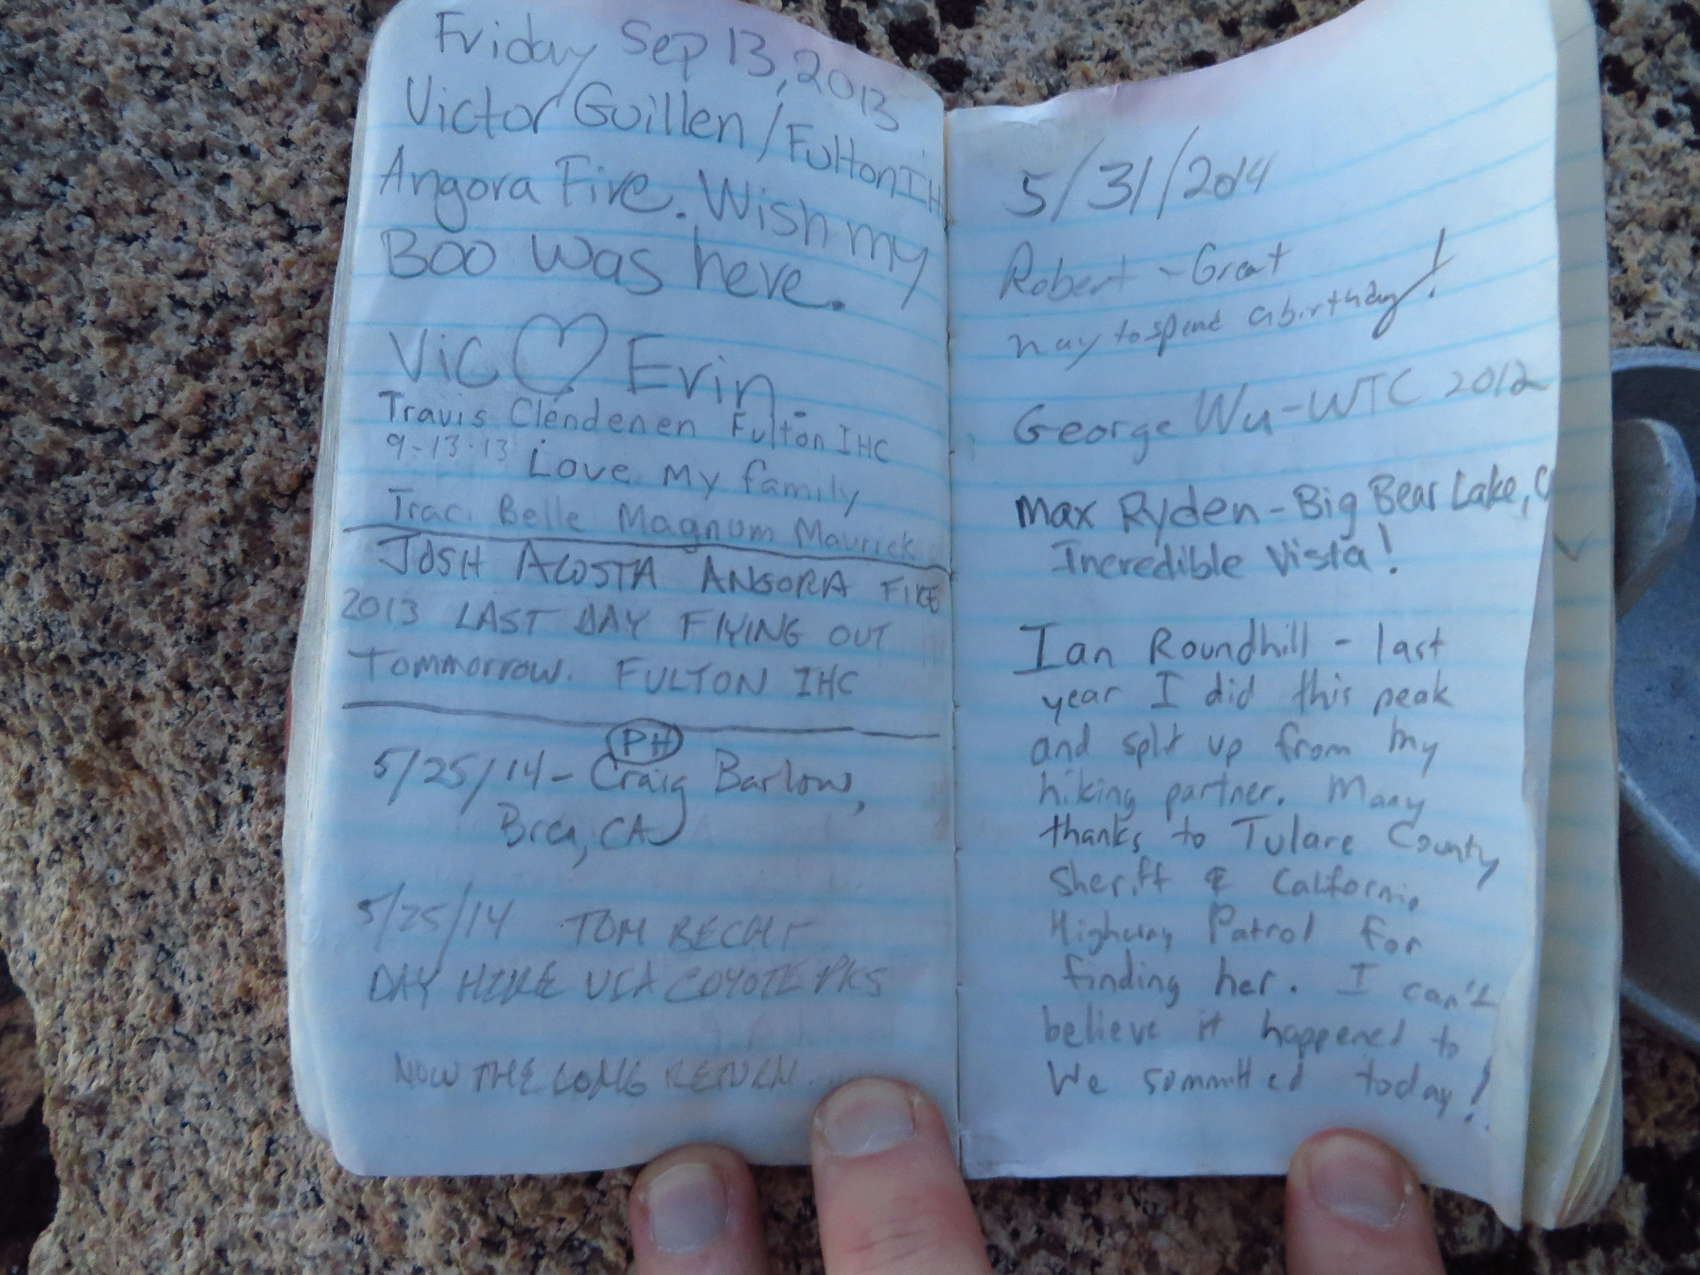 Friday Sep 13, 2013
Victor Guillen / Fulton IH
Angora Fire. Wish my
Boo was here.
Vic ♡ Erin.
Travis Clendenen Fulton IHC
9-13-13 Love my family
Traci Belle Magnum Maurick
JOSH ACOSTA ANGORA FIRE
2013 LAST DAY FlYING OUT
Tommorrow. FULTON IHC
PH
5/25/14 - Craig Barlow,
Brea, CA
5/25/14 TOM BECHT
DAY HIKE VIA COYOTE PKS
NOW THE LONG RETURN...
5/31/2014
Robert - Great
way to spend a birthday!
George Wu - WTC 2012
Max Ryden - Big Bear Lake, C
Incredible Vista!
Ian Roundhill - last
year I did this peak
and split up from my
hiking partner. Many
thanks to Tulare County
Sheriff & California
Highway Patrol for
finding her. I can't
believe it happened to
We summitted today!